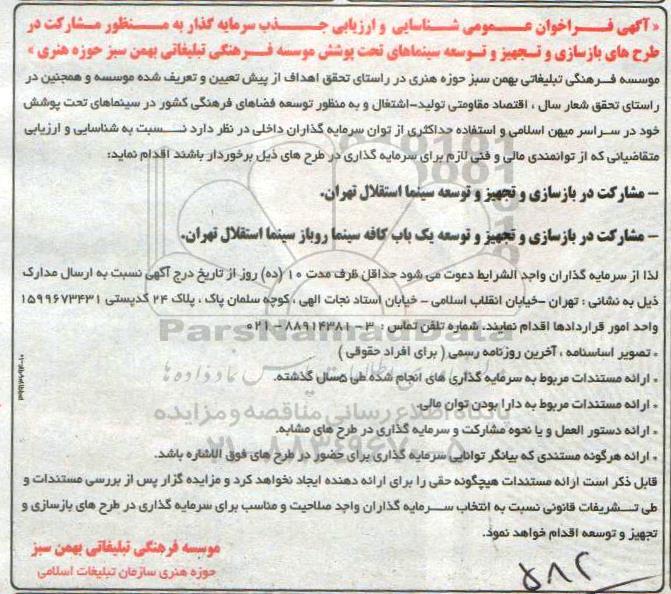 « آگهی فراخوان عمومی شناسایی و ارزیابی جذب سرمایه گذار به منظور مشارکت در
طرح های بازسازی و تجهیز و توسعه سینماهای تحت پوشش موسسه فرهنگی تبلیغاتی بهمن سبز حوزه هنری »
موسسه فرهنگی تبلیغاتی بهمن سبز حوزه هنری در راستای تحقق اهداف از پیش تعیین و تعریف شده موسسه و همچنین در
راستای تحقق شعار سال ، اقتصاد مقاومتی تولید-اشتغال و به منظور توسعه فضاهای فرهنگی کشور در سینماهای تحت پوشش
خود در سراسر میهن اسلامی و استفاده حداکثری از توان سرمایه گذاران داخلی در نظر دارد نسبت به شناسایی و ارزیابی
متقاضیانی که از توانمندی مالی و فنی لازم برای سرمایه گذاری در طرح های ذیل برخوردار باشند اقدام نماید:
– مشارکت در بازسازی و تجهیز و توسعه سینما استقلال تهران.
– مشارکت در بازسازی و تجهیز و توسعه یک باب کافه سینما روباز سینما استقلال تهران.
لذا از سرمایه گذاران واجد الشرایط دعوت می شود حداقل ظرف مدت ۱۰ (ده) روز از تاریخ درج آگهی نسبت به ارسال مدارک
ذیل به نشانی : تهران –خیابان انقلاب اسلامی – خیابان استاد نجات الهی ، کوچه سلمان پاک ، پلاک ۲۴ کدپستی ۱۵۹۹۶۷۳۴۳۱
واحد امور قراردادها اقدام نمایند. شماره تلفن تماس : ۳ – ۸۸۹۱۴۳۸۱ – ۰۲۱
* تصویر اساسنامه ، آخرین روزنامه رسمی ( برای افراد حقوقی )
* ارائه مستندات مربوط به سرمایه گذاری های انجام شده طی ۵سال گذشته.
* ارائه مستندات مربوط به دارا بودن توان مالی.
* ارائه دستور العمل و یا نحوه مشارکت و سرمایه گذاری در طرح های مشابه.
* ارائه هرگونه مستندی که بیانگر توانایی سرمایه گذاری برای حضور در طرح های فوق الاشاره باشد.
قابل ذکر است ارائه مستندات هیچگونه حقی را برای ارائه دهنده ایجاد نخواهد کرد و مزایده گزار پس از بررسی مستندات و
طی تشریفات قانونی نسبت به انتخاب سرمایه گذاران واجد صلاحیت و مناسب برای سرمایه گذاری در طرح های بازسازی و
تجهیز و توسعه اقدام خواهد نمود.
موسسه فرهنگی تبلیغاتی بهمن سبز
حوزه هنری سازمان تبلیغات اسلامی
ParsNamadData
پایگاه اطلاع رسانی مناقصه و مزایده
۰۲۱-۸۸۳۴۹۶۷۰-۵